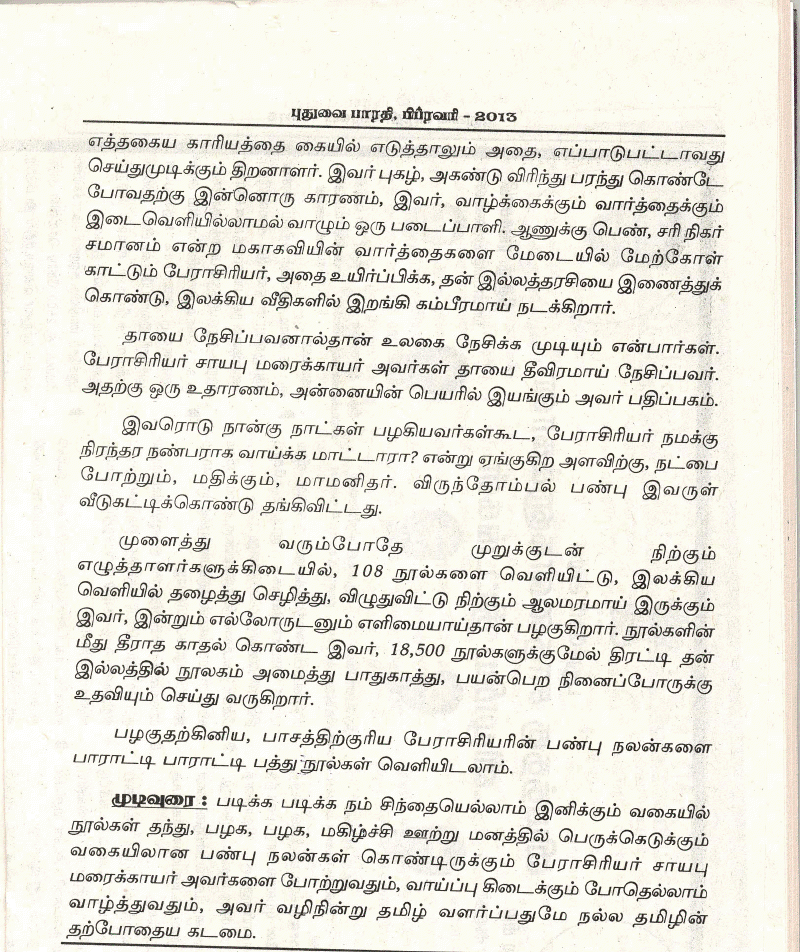 புதுவை பாரதி, பிப்ரவரி - 2013
எத்தகைய காரியத்தை கையில் எடுத்தாலும் அதை, எப்பாடுபட்டாவது
செய்துமுடிக்கும் திறனாளர். இவர் புகழ், அகண்டு விரிந்து பரந்து கொண்டே
போவதற்கு இன்னொரு காரணம், இவர், வாழ்க்கைக்கும் வார்த்தைக்கும்
இடைவெளியில்லாமல் வாழும் ஒரு படைப்பாளி. ஆணுக்கு பெண், சரி நிகர்
சமானம் என்ற மகாகவியின் வார்த்தைகளை மேடையில் மேற்கோள்
காட்டும் பேராசிரியர், அதை உயிர்ப்பிக்க, தன் இல்லத்தரசியை இணைத்துக்
கொண்டு, இலக்கிய வீதிகளில் இறங்கி கம்பீரமாய் நடக்கிறார்.
தாயை நேசிப்பவனால்தான் உலகை நேசிக்க முடியும் என்பார்கள்.
பேராசிரியர் சாயபு மரைக்காயர் அவர்கள் தாயை தீவிரமாய் நேசிப்பவர்.
அதற்கு ஒரு உதாரணம், அன்னையின் பெயரில் இயங்கும் அவர் பதிப்பகம்.
இவரொடு நான்கு நாட்கள் பழகியவர்கள்கூட, பேராசிரியர் நமக்கு
நிரந்தர நண்பராக வாய்க்க மாட்டாரா? என்று ஏங்குகிற அளவிற்கு, நட்பை
போற்றும், மதிக்கும், மாமனிதர். விருந்தோம்பல் பண்பு இவருள்
வீடுகட்டிக்கொண்டு தங்கிவிட்டது.
முளைத்து வரும்போதே முறுக்குடன் நிற்கும்
எழுத்தாளர்களுக்கிடையில், 108 நூல்களை வெளியிட்டு, இலக்கிய
வெளியில் தழைத்து செழித்து, விழுதுவிட்டு நிற்கும் ஆலமரமாய் இருக்கும்
இவர், இன்றும் எல்லோருடனும் எளிமையாய்தான் பழகுகிறார். நூல்களின்
மீது தீராத காதல் கொண்ட இவர், 18,500 நூல்களுக்குமேல் திரட்டி தன்
இல்லத்தில் நூலகம் அமைத்து பாதுகாத்து, பயன்பெற நினைப்போருக்கு
உதவியும் செய்து வருகிறார்.
பழகுதற்கினிய, பாசத்திற்குரிய பேராசிரியரின் பண்பு நலன்களை
பாராட்டி பாராட்டி பத்து நூல்கள் வெளியிடலாம்.
முடிவுரை : படிக்க படிக்க நம் சிந்தையெல்லாம் இனிக்கும் வகையில்
நூல்கள் தந்து, பழக, பழக, மகிழ்ச்சி ஊற்று மனத்தில் பெருக்கெடுக்கும்
வகையிலான பண்பு நலன்கள் கொண்டிருக்கும் பேராசிரியர் சாயபு
மரைக்காயர் அவர்களை போற்றுவதும், வாய்ப்பு கிடைக்கும் போதெல்லாம்
வாழ்த்துவதும், அவர் வழிநின்று தமிழ் வளர்ப்பதுமே நல்ல தமிழின்
தற்போதைய கடமை.